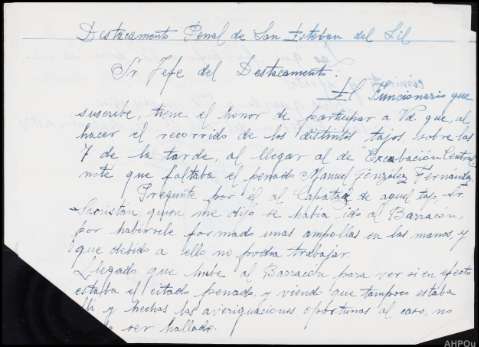 Destacamento Penal de San Esteban del Sil
Sr Jefe del Destacamento:
El Funcionario que
suscribe, tiene el honor de participar a Vd que al
hacer el recorrido de los distintos tajos sobre las
7 de la tarde, al llegar al de Excabación Central
note que faltaba el penado Manuel González Fernandez
Pregunte por él al Capataz de aquel tajo, Sr.
quien me dijo se habia ido al Barracon,
por habersele formado unas ampollas en las manos, y
que debido a ello no podia trabajar.
Llegado que hube al Barracon para ver si en efecto
estaba el citado penado, y viendo que tampoco estaba
alli y hechas las averiguaciones oportunas al caso, no
ser hallado.
AHPOu